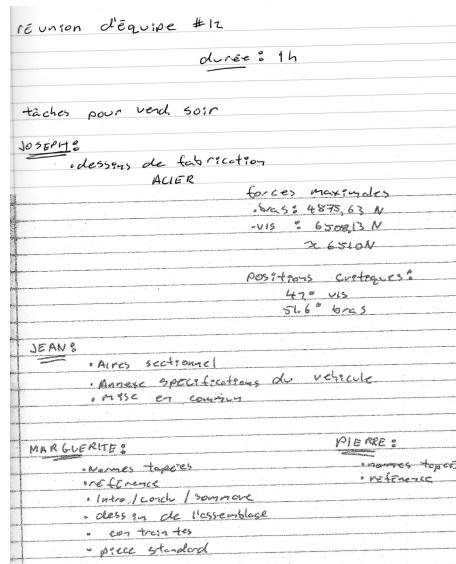 réunion d'équipe #12
durée : 1h
tâches pour vend. soir
JOSEPH :
• dessins de fabrication
ACIER
forces maximales
• bras : 4875,63 N
- vis : 6508,13 N
≈ 6510N
positions critiques :
42° vis
51.6° bras
JEAN :
• Aires sectionnel
• Annexe spécifications du vehicule
• mise en commun
MARGUERITE :
• Normes tapées
• référence
• Intro/conclu/sommaire
• dessin de l'assemblage
• contraintes
• piece standard
PIERRE :
• normes tapées
• référence